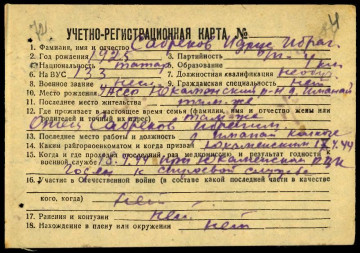 УЧЕТНО-РЕГИСТРАЦИОННАЯ КАРТА №
1. Фамилия, имя и отчество Сабреков Идрис Ибраг.
2. Год рождения 1925 3. Партийность
4. Национальность татар. 5. Образование 1 кл.
6. На ВУС 133 7. Должностная квалификация необуч
8. Военное звание нет 9. Гражданская специальность нет
10. Место рождения УАССР Юкаменский р-н д.
11. Последнее место жительства там же
12. Где проживает в настоящее время семья (фамилия, имя и отчество жены или
родителей и точный их адрес) там же
Отец Сабреков Ибрагим
13. Последнее место работы и должность колхоз
14. Каким райгорвоенкоматом и когда призван Юкаменским 44
15. Когда и где проходил последний раз медкомиссию, результат годности к
военной службе 44
Годен к строевой службе
16. Участие в Отечественной войне (в составе какой последней части и качестве
кого, когда) нет
17. Ранения и контузии нет
18. Нахождение в плену или окружении нет